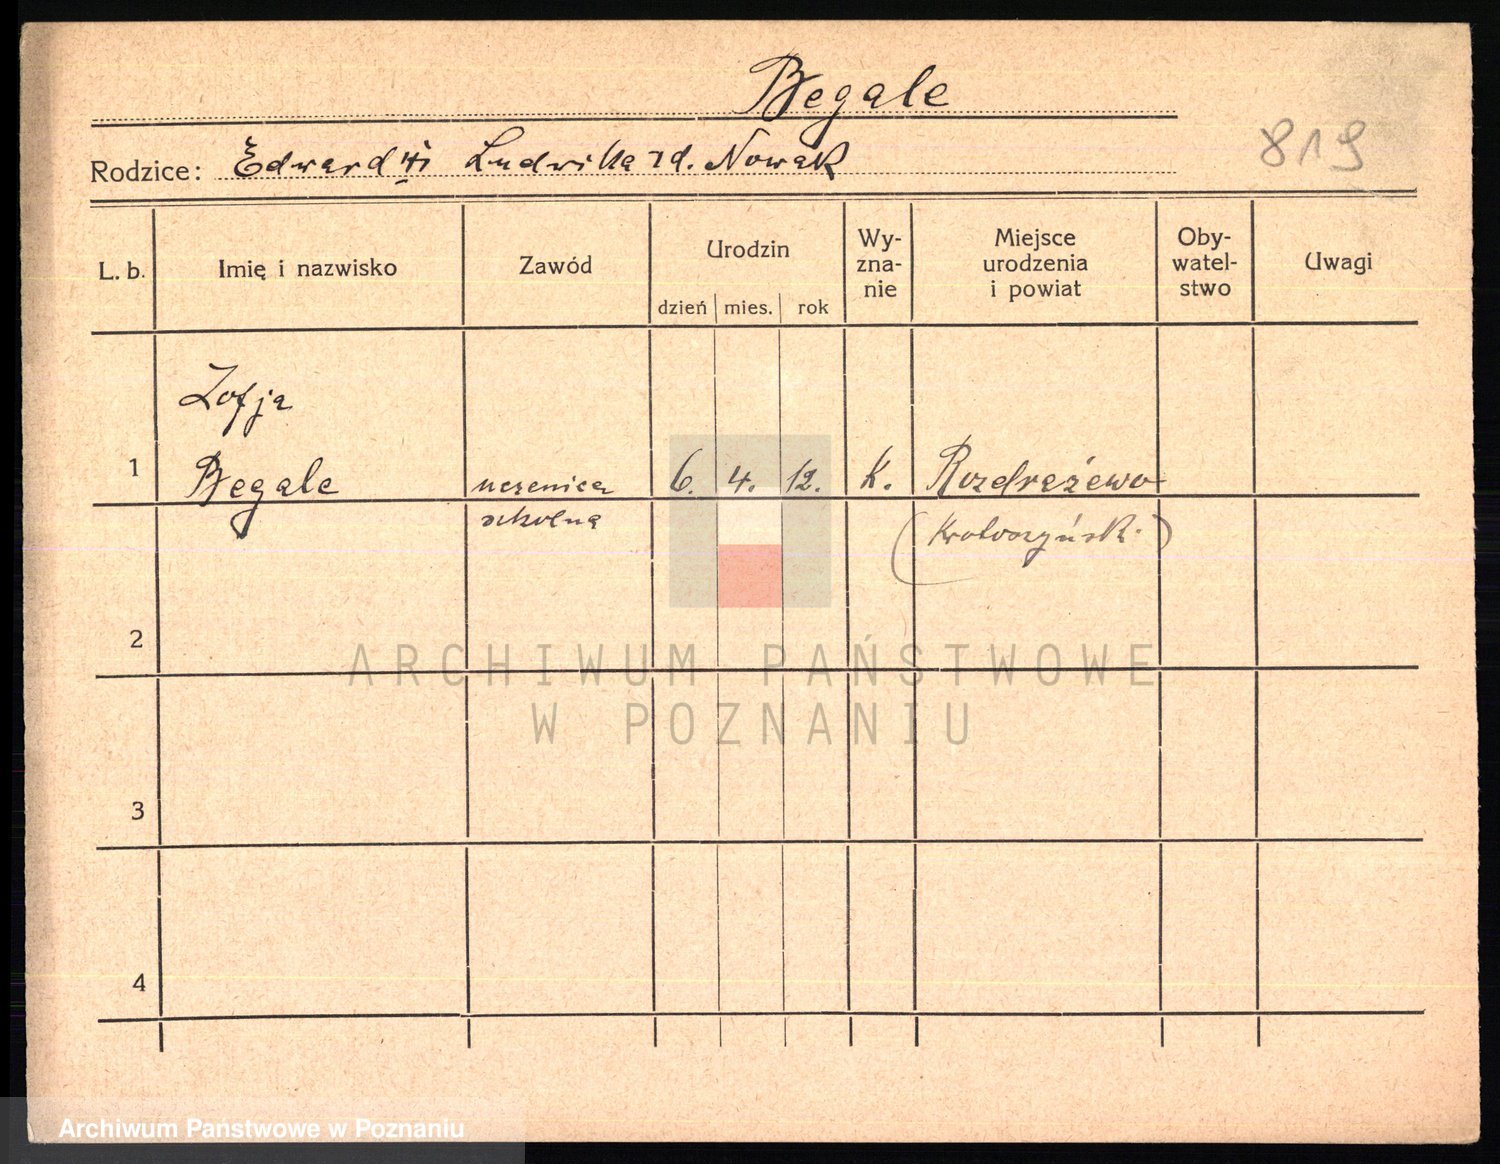 Begale
819
Rodzice: Edward i Ludwika zd. Nowak
L. b.
Imię i nazwisko
Zawód
Urodzin
dzień mies. rok
Wy-
zna-
nie
Miejsce
urodzenia
i powiat
Oby-
watel-
stwo
Uwagi
Zofja
1 Begale uczenica 6. 4. 12. K. Rozdrażewo
szkolna (Krotoszyńsk.)
2
3
4
ARCHIWUM PAŃSTWOWE
W POZNANIU
Archiwum Państwowe w Poznaniu